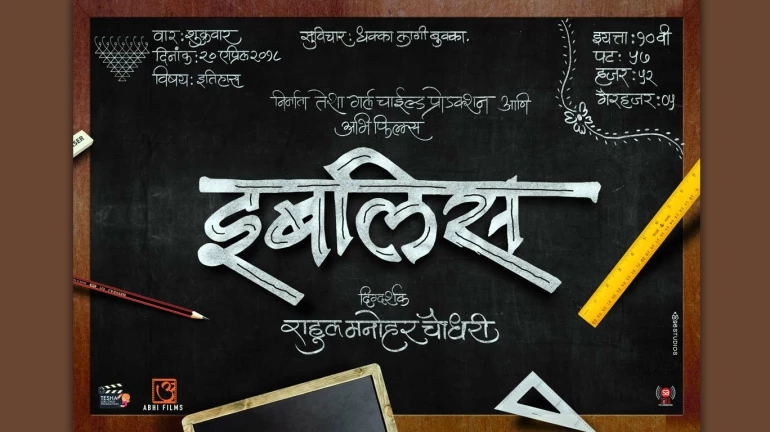 वार : शुक्रवार
दिनांक : २० एप्रिल २०१८
विषय : इतिहास
सुविचार : धक्का लागी बुक्का.
इयत्ता : १०वी
पट : ५७
हजर : ५२
गैरहजर : ०५
निर्माता तेशा गर्ल चाईल्ड प्रोडक्शन आणि
अभि फिल्म्स
इबलिस
दिग्दर्शक
राहुल मनोहर चौधरी
TESHA
ABHI FILMS